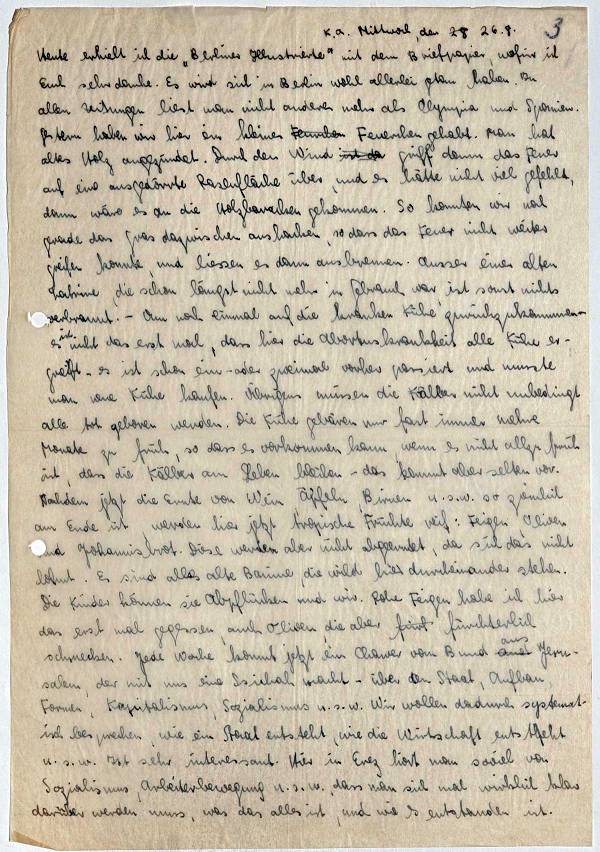 K.A. Mittwoch, den 28 26.8. 3
Heute erhielt ich die „Berliner Illustrierte" mit dem Briefpapier, wofür ich
Euch sehr danke. Es wird sich in Berlin wohl allerlei getan haben. In
allen Zeitungen liest man nicht anderes mehr als Olympia und Spanien.
Gestern haben wir hier ein kleines Feuerchen gehabt. Man hat
altes Holz angezündet. Durch den Wind ist da griff dann das Feuer
auf eine ausgedörrte Rasenfläche über, und es hätte nicht viel gefehlt,
dann wäre es an die Holzbaracken gekommen. So konnten wir mal
gerade das Gras dazwischen aushacken, so dass das Feuer nicht weiter
greifen konnte, und liessen es dann ausbrennen. Ausser einer alten
Latrine, die schon längst nicht mehr in Gebrauch war, ist sonst nichts
verbrannt. – Um noch einmal auf die kranken Kühe zurückzukommen –
es ist nicht das erst mal, dass hier die Abortuskrankheit alle Kühe er-
greift – es ist schon ein- oder zweimal vorher passiert und musste
man neue Kühe kaufen. Übrigens müssen die Kälber nicht unbedingt
alle tot geboren werden. Die Kühe gebären nur fast immer mehre
Monate zu früh, so dass es vorkommen kann, wenn es nicht allzu früh
ist, dass die Kälber am Leben bleiben – das kommt aber selten vor.
Nachdem jetzt die Ernte von Wein, Äpfeln, Birnen u.s.w. so ziemlich
am Ende ist, werden hier jetzt tropische Früchte reif: Feigen, Oliven
und Johannisbrot. Diese werden aber nicht abgeerntet, da sich das nicht
lohnt. Es sind alles alte Bäume, die wild hier durcheinander stehen.
Die Kinder können sie abpflücken und wir. Rohe Feigen habe ich hier
das erst mal gegessen, auch Oliven, die aber fürchterlich
schmecken. Jede Woche kommt jetzt ein Chawer vom Bund aus Jeru-
salem, der mit uns eine Ssichah macht – über den Staat, Aufbau,
Formen, Kapitalismus, Sozialismus u.s.w. Wir wollen dadurch systemat-
isch besprechen, wie ein Staat entsteht, wie die Wirtschaft entsteht
u.s.w. Ist sehr interessant. Hier in Erez hört man soviel von
Sozialismus, Arbeiterbewegung u.s.w., dass man sich mal wirklich klar
darüber werden muss, was das alles ist, und wie es entstanden ist.